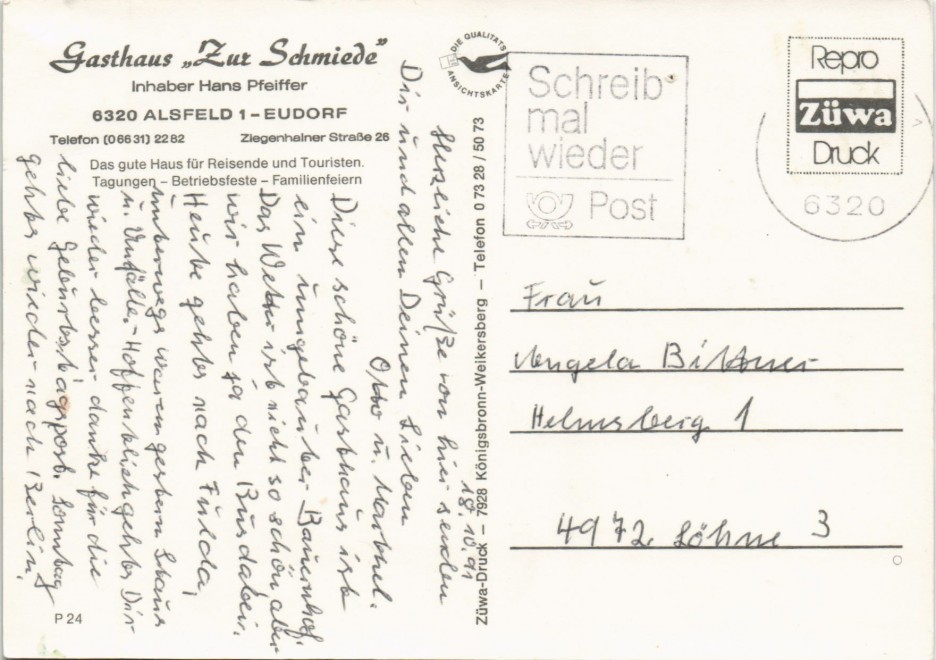 Gasthaus „Zur Schmiede”
Inhaber Hans Pfeiffer
6320 ALSFELD 1 – EUDORF
Telefon (0 66 31) 22 82 Ziegenhainer Straße 26
Das gute Haus für Reisende und Touristen.
Tagungen – Betriebsfeste – Familienfeiern
DIE QUALITÄTS
ANSICHTSKARTE
Schreib
mal
wieder
Post
Repro
Züwa
Druck
6320
18.10.91
Herzliche Grüße von hier senden
Dir und allen Deinen Lieben
Otto u.
Diese schöne Gasthaus ist
ein umgebauter Bauernhof.
Das Wetter ist nicht so schön, aber
wir haben ja den Bus dabei.
Heute gehts nach Fulda,
unterwegs waren gestern Staus
u. Unfälle. Hoffentlich gehts Dir
wieder besser danke für die
liebe Geburtstagspost. Sonntag
gehts wieder nach Berlin.
Züwa-Druck – 7928 Königsbronn-Weikersberg – Telefon 0 73 28 / 50 73
Frau
Angela Bittner
Helmsberg 1
4972 Löhne 3
P 24